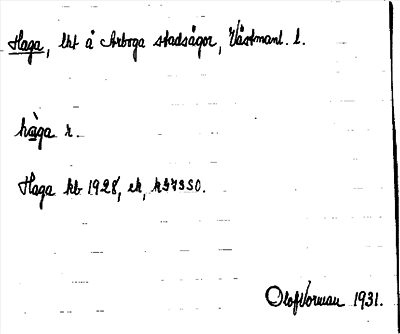 Haga, lht å Arboga stadsägor, Västmanl. l.
hàga r.
Haga kb 1928, ek,
Olof Vorman 1931.